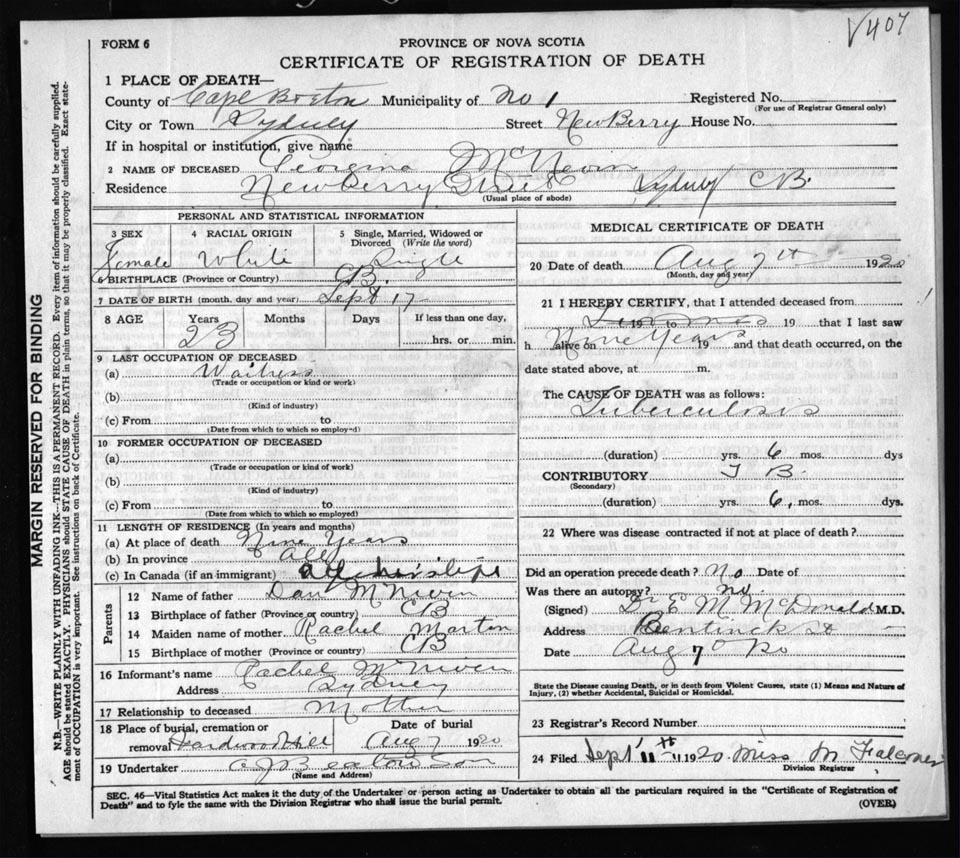 V407
FORM 6
PROVINCE OF NOVA SCOTIA
CERTIFICATE OF REGISTRATION OF DEATH
1 PLACE OF DEATH—
County of Cape Breton Municipality of No 1 Registered No.
(For use of Registrar General only)
City or Town Sydney Street New Berry House No.
If in hospital or institution, give name
2 NAME OF DECEASED Georgina McNevin
Residence Newberry Street Sydney CB.
(Usual place of abode)
PERSONAL AND STATISTICAL INFORMATION
3 SEX 4 RACIAL ORIGIN 5 Single, Married, Widowed or Divorced (Write the word)
Female White Single
6 BIRTHPLACE (Province or Country) CB.
7 DATE OF BIRTH (month, day and year) Sept 17
8 AGE Years Months Days If less than one day,
23 hrs. or min.
9 LAST OCCUPATION OF DECEASED
(a) Waitress
(Trade or occupation or kind or work)
(b)
(Kind of industry)
(c) From to
(Date from which to which so employed)
10 FORMER OCCUPATION OF DECEASED
(a)
(Trade or occupation or kind of work)
(b)
(Kind of industry)
(c) From to
(Date from which to which so employed)
11 LENGTH OF RESIDENCE (In years and months)
(a) At place of death Nine Years
(b) In province All
(c) In Canada (if an immigrant) all her life
Parents
12 Name of father Dan McNiven
13 Birthplace of father (Province or country) CB
14 Maiden name of mother Rachel Martin
15 Birthplace of mother (Province or country) CB
16 Informant's name Rachel McNiven
Address Sydney
17 Relationship to deceased Mother
18 Place of burial, cremation or removal Hardwood Hill
Date of burial
Aug 7 1920
19 Undertaker AJ Beaton & Son
(Name and Address)
MEDICAL CERTIFICATE OF DEATH
20 Date of death Aug 7th 1920
(Month, day and year)
21 I HEREBY CERTIFY, that I attended deceased from
19 to 19 that I last saw
h alive on 19 and that death occurred, on the
date stated above, at m.
The CAUSE OF DEATH was as follows:
Tuberculosis
(duration) yrs. 6 mos. dys
CONTRIBUTORY T B.
(Secondary)
(duration) yrs. 6, mos. dys.
22 Where was disease contracted if not at place of death?
Did an operation precede death? No Date of
Was there an autopsy? No.
(Signed) Dr E M McDonald M.D.
Address Bentinck St
Date Aug 7 20
State the Disease causing Death, or in death from Violent Causes, state (1) Means and Nature of
Injury, (2) whether Accidental, Suicidal or Homicidal.
23 Registrar's Record Number
24 Filed Sept 11th 1920 Miss M Falconer
Division Registrar
SEC. 46—Vital Statistics Act makes it the duty of the Undertaker or person acting as Undertaker to obtain all the particulars required in the "Certificate of Registration of
Death" and to fyle the same with the Division Registrar who shall issue the burial permit.
(OVER)
MARGIN RESERVED FOR BINDING
N.B.—WRITE PLAINLY WITH UNFADING INK—THIS IS A PERMANENT RECORD. Every item of information should be carefully supplied.
AGE should be stated EXACTLY. PHYSICIANS should STATE CAUSE OF DEATH in plain terms, so that it may be properly classified. Exact statement of OCCUPATION is very important. See instructions on back of Certificate.